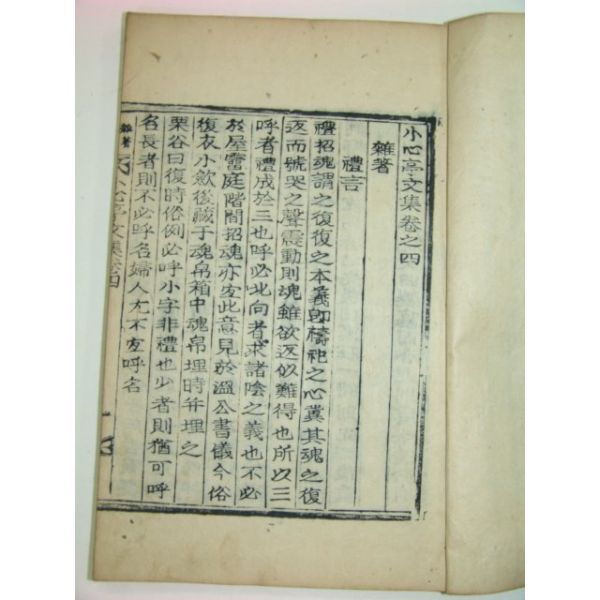 小心亭文集卷之四
雜著
禮言
禮招魂謂之復復之本義卽禱祀之心冀其魂之復
返而號哭之聲震動則魂雖欲返似難得也所以三
呼者禮成於三也呼必北向者求諸陰之義也不必
於屋霤庭階間招魂亦安此意見於溫公書儀今俗
復衣小斂後藏于魂帛箱中魂帛埋時幷埋之
栗谷曰復時俗例必呼小字非禮也少者則猶可呼
名長者則不必呼名婦人尤不宜呼名
雜著 小心亭文集卷四 一